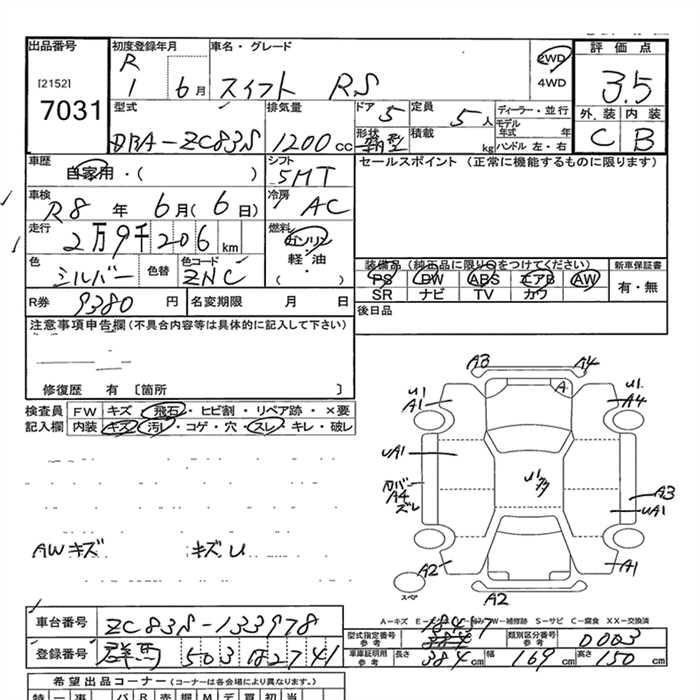 出品番号 初度登録年月 車名・グレード 評価点
[2152] R 1 6月 スイフト RS 2WD 4WD 3.5
7031
型式 排気量 ドア 定員 ディーラー・並行 外装 内装
DBA-ZC83S 1200cc 5 5人 モデル年式 年 C B
形状 箱型 積載 kg ハンドル 左・右
車歴 自家用・( ) シフト 5MT セールスポイント (正常に機能するものに限ります)
車検 R8年 6月(6日) 冷房 AC
走行 2万9千206km 燃料 ガソリン 軽・油 ( )
色 シルバー 色替 色コード ZNC
装備品 (純正品に限り○をつけてください) 新車保証書
PS PW ABS エアB AW 有・無
SR ナビ TV カワ
R券 9380円 名変期限 月 日 後日品
注意事項申告欄(不具合内容等は具体的に記入して下さい)
修復歴 有 〔箇所 〕
検査員 FW キズ・飛石・ヒビ割・リペア跡・×要
記入欄 内装 キズ・汚レ・コゲ・穴・スレ・キレ・破レ
AWキズ キズU
A3 A4
U1 A1 A U1 A4
UA1 U1
カバー A4 ズレ A3 UA1
A2 A1
スペア A2
車台番号 ZC83S-133978
A-キズ W-補修跡 S-サビ C-腐食 XX-交換済
型式指定番号 参考 類別区分番号 参考 0003
登録番号 群馬 503 2741
車庫証明用 参考 長さ 384cm 幅 169cm 高さ 150cm
希望出品コーナー (コーナーは各会場により異なります。)